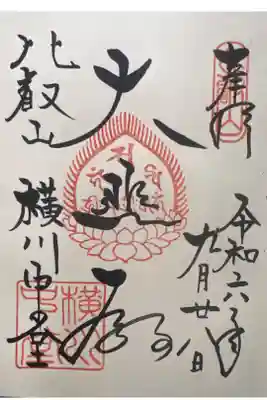 奉拝
令和六年九月廿八日
大悲殿
比叡山
横川中堂
横川中堂